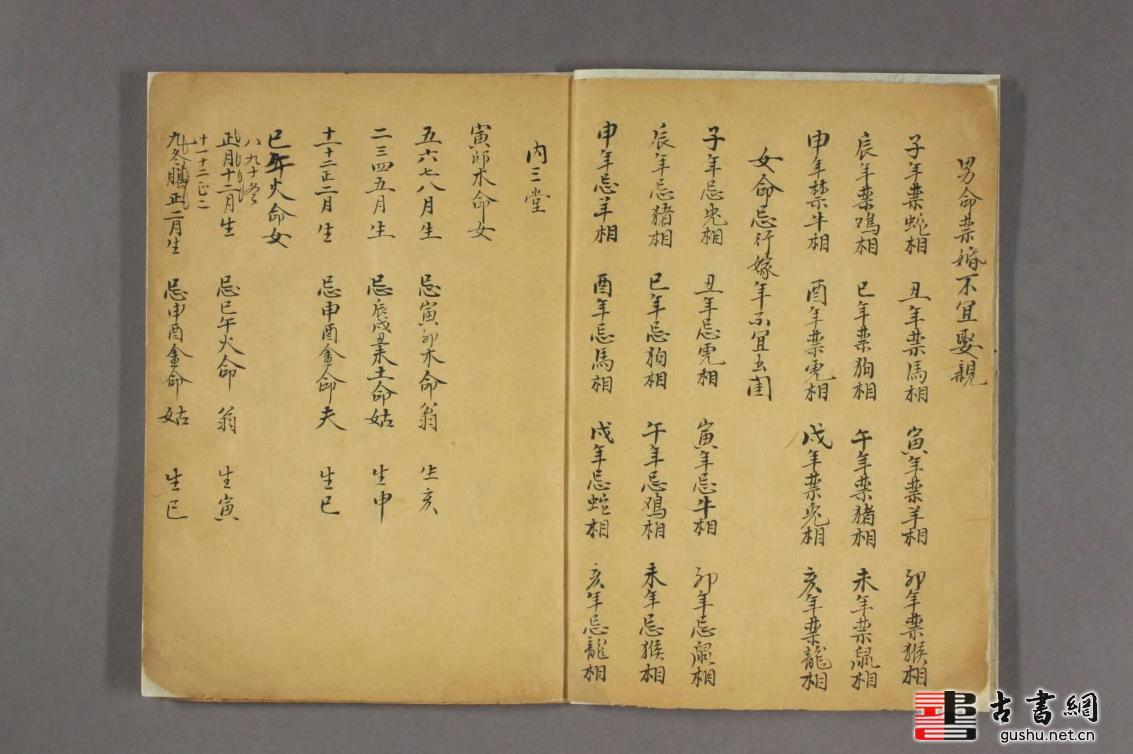 男命禁婚不宜娶親
子年禁蛇相 丑年禁馬相 寅年禁羊相 卯年禁猴相
辰年禁鳮相 巳年禁狗相 午年禁猪相 未年禁鼠相
申年禁牛相 酉年禁虎相 戌年禁兔相 亥年禁龍相
女命忌行嫁年不宜出閨
子年忌兔相 丑年忌虎相 寅年忌牛相 卯年忌鼠相
辰年忌猪相 巳年忌狗相 午年忌鳮相 未年忌猴相
申年忌羊相 酉年忌馬相 戌年忌蛇相 亥年忌龍相
内三堂
寅卯木命女
五六七八月生 忌寅卯木命翁 生亥
二三四五月生 忌辰戌丑未土命姑 生申
十一十二正二月生 忌申酉金命夫 生巳
巳午火命女
八九十
正月十二月生 忌巳午火命翁 生寅
十一十二正二
九冬臘正二月生 忌申酉金命姑 生巳
古書網
gushu.net.cn